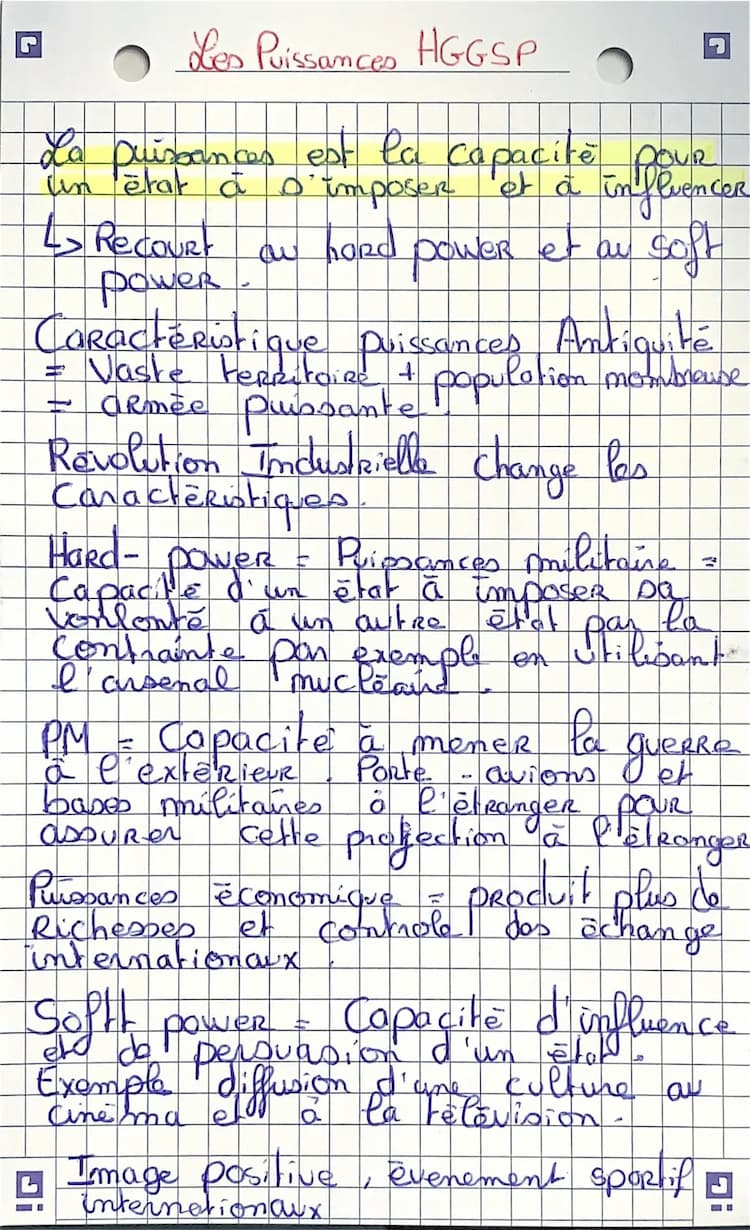 Les Puissances HGGSP
La puissances est la capacité pour
un état à s'imposer et à influencer
↳ Recourt au hard power et au soft
power.
Caractéristique puissances Antiquité
= Vaste territoire + population nombreuse
= armée puissante
Révolution Industrielle change les
caractéristiques.
Hard-power = Puissances militaire =
Capacité d'un état à imposer sa
volonté à un autre état par la
contrainte par exemple en utilisant
l'arsenal nucléaire.
PM = Capacité à mener la guerre
à l'extérieur. Porte-avions et
bases militaires à l'étranger pour
assurer cette projection à l'étranger
Puissances économique = produit plus de
Richesses et controle des échange
internationaux.
Soft power = Capacité d'influence
et de persuasion d'un état.
Exemple diffusion d'une culture au
cinéma et à la télévision.
Image positive, évenement sportif
internationaux